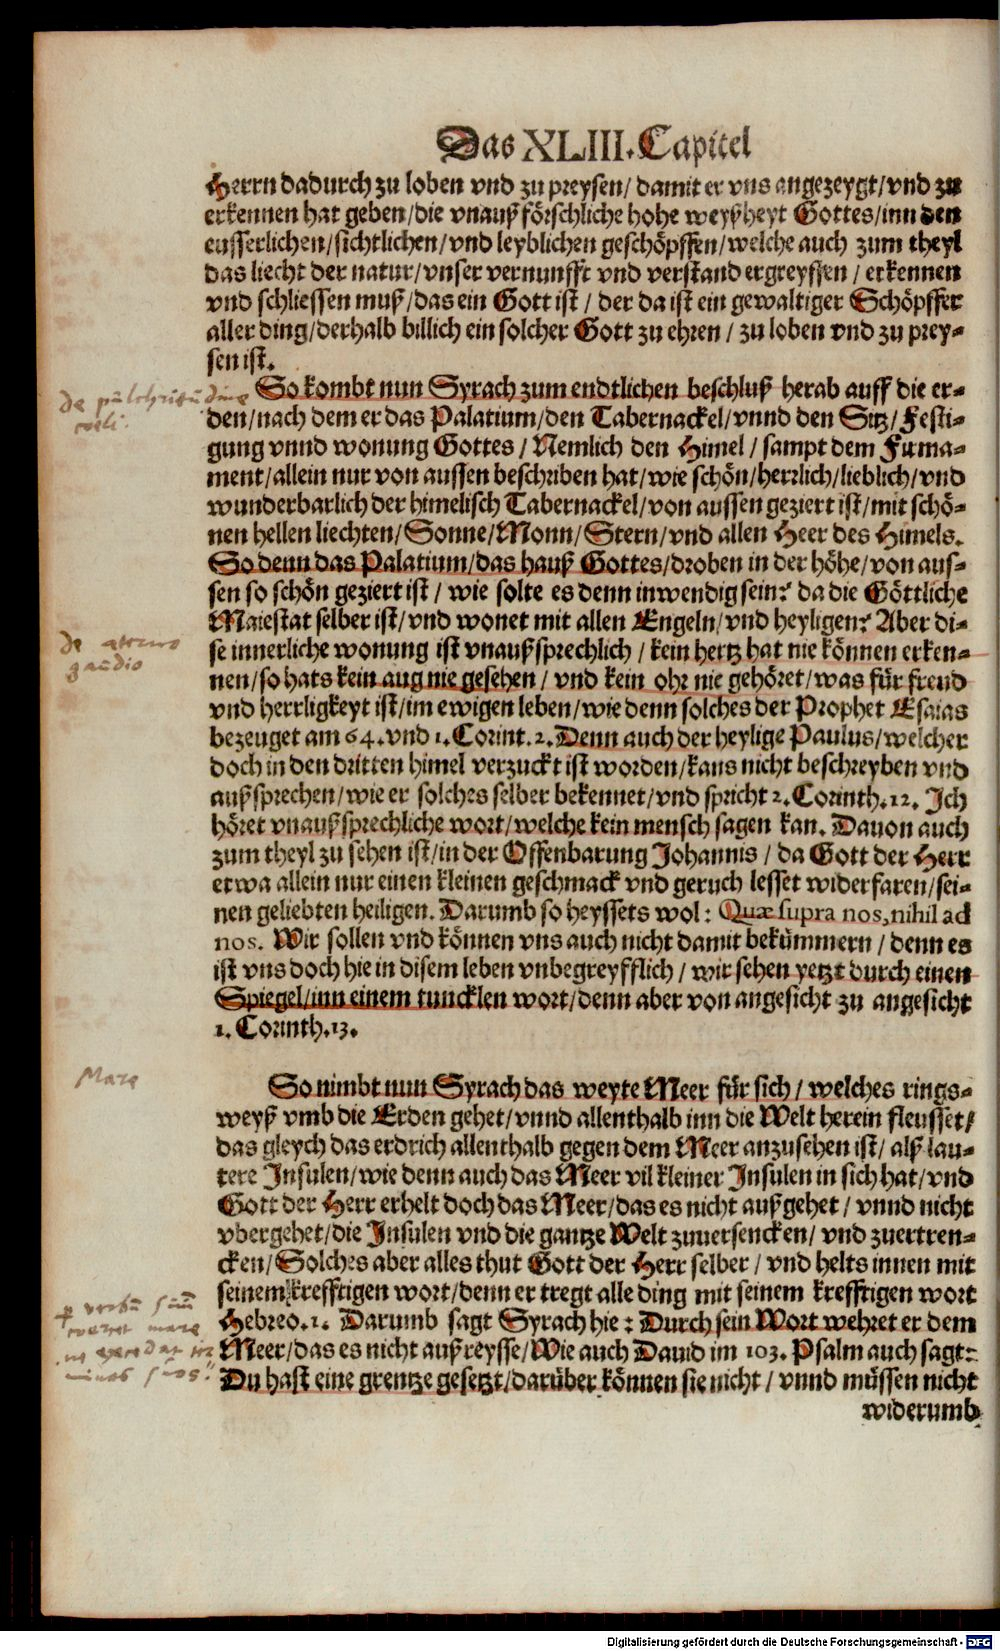 Das XLIII. Capitel
Herrn dadurch zu loben vnd zu preysen/ damit er vns angezeygt/vnd zu
erkennen hat geben/die vnaußförschliche hohe weyßheyt Gottes/inn den
eusserlichen/sichtlichen/vnd leyblichen geschöpffen/welche auch zum theyl
das liecht der natur/vnser vernunfft vnd verstand ergreyffen / erkennen
vnd schliessen muß/das ein Gott ist / der da ist ein gewaltiger Schöpffer
aller ding/derhalb billich ein solcher Gott zu ehren / zu loben vnd zu prey=
sen ist.
de pulchritudine
coeli.
So kombt nun Syrach zum endtlichen beschluß herab auff die er=
den/nach dem er das Palatium/den Tabernackel/vnnd den Sitz/Festi=
gung vnnd wonung Gottes / Nemlich den Himel / sampt dem Firma=
ment/allein nur von aussen beschriben hat/wie schön/herrlich/lieblich/vnd
wunderbarlich der himelisch Tabernackel/von aussen geziert ist/mit schö=
nen hellen liechten/Sonne/Monn/Stern/vnd allen Heer des Himels.
So denn das Palatium/das hauß Gottes/droben in der höhe/von aus=
sen so schön geziert ist / wie solte es denn inwendig sein? da die Göttliche
Maiestat selber ist/vnd wonet mit allen Engeln/vnd heyligen? Aber di=
de aeterno
gaudio
se innerliche wonung ist vnaußsprechlich / kein hertz hat nie können erken=
nen/so hats kein aug nie gesehen / vnd kein ohr nie gehöret/was für freud
vnd herrligkeyt ist/im ewigen leben/wie denn solches der Prophet Esaias
bezeuget am 64. vnd 1. Corint. 2. Denn auch der heylige Paulus/welcher
doch in den dritten himel verzuckt ist worden/kans nicht beschreyben vnd
außsprechen/wie er solches selber bekennet/vnd spricht 2. Corinth. 12. Ich
höret vnaußsprechliche wort/welche kein mensch sagen kan. Dauon auch
zum theyl zu sehen ist/in der Offenbarung Johannis / da Gott der Herr
etwa allein nur einen kleinen geschmack vnd geruch lesset widerfaren/sei=
nen geliebten heiligen. Darumb so heyssets wol: Quæ supra nos, nihil ad
nos. Wir sollen vnd können vns auch nicht damit bekümmern / denn es
ist vns doch hie in disem leben vnbegreyfflich / wir sehen yetzt durch einen
Spiegel/inn einem tuncklen wort/denn aber von angesicht zu angesicht
1. Corinth. 13.
Mare
So nimbt nun Syrach das weyte Meer für sich / welches rings=
weyß vmb die Erden gehet/vnnd allenthalb inn die Welt herein fleusset/
das gleych das erdrich allenthalb gegen dem Meer anzusehen ist/ alß lau=
tere Insulen/wie denn auch das Meer vil kleiner Insulen in sich hat/vnd
Gott der Herr erhelt doch das Meer/das es nicht außgehet / vnnd nicht
vbergehet/die Insulen vnd die gantze Welt zuuersencken/ vnd zuertren=
cken/Solches aber alles thut Gott der Herr selber / vnd helts innen mit
seinem krefftigen wort/denn er tregt alle ding mit seinem krefftigen wort
p verbū suū
coercet mare
ne excedat ter
minos suos.
Hebreo. 1. Darumb sagt Syrach hie: Durch sein Wort wehret er dem
Meer/das es nicht außreysse/Wie auch Dauid im 103. Psalm auch sagt:
Du hast eine grentze gesetzt/darüber können sie nicht / vnnd müssen nicht
widerumb
Digitalisierung gefördert durch die Deutsche Forschungsgemeinschaft - DFG